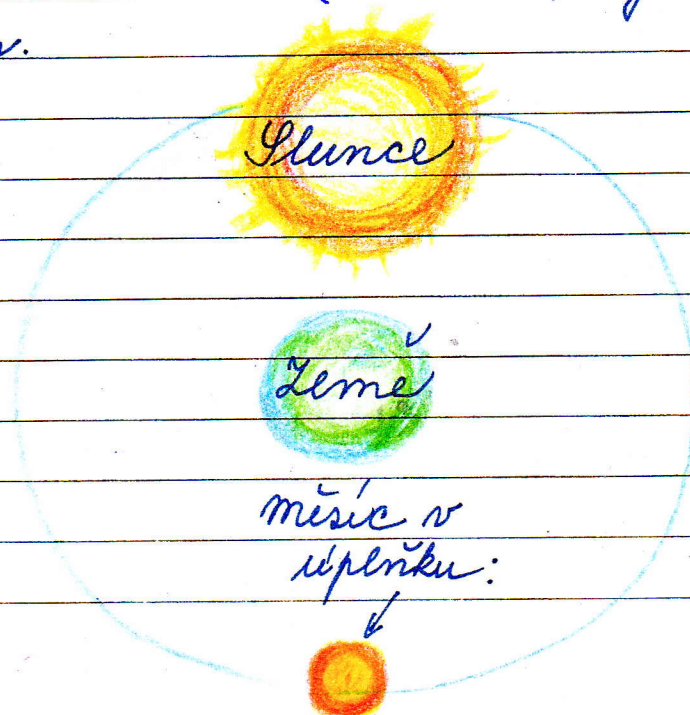 v.
Slunce
Země
měsíc v
úplňku: